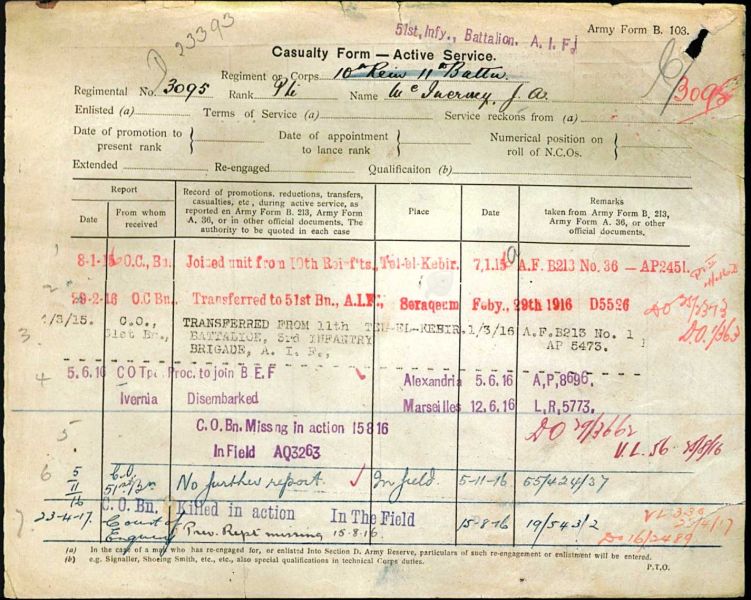 51st. Infy., Battalion. A. I. F.
Army Form B. 103.
D 23393
Casualty Form — Active Service.
Regiment or Corps 10th Rein 11th Battn.
3095
Regimental No. 3095 Rank Pte Name McInerney, J. A.
Enlisted (a) Terms of Service (a) Service reckons from (a)
Date of promotion to present rank } Date of appointment to lance rank } Numerical position on roll of N.C.Os. }
Extended Re-engaged Qualificaiton (b)
Report
Date
From whom received
Record of promotions, reductions, transfers, casualties, etc., during active service, as reported on Army Form B. 213, Army Form A. 36, or in other official documents. The authority to be quoted in each case
Place
Date
Remarks
taken from Army Form B. 213, Army Form A. 36, or other official documents.
1
8-1-16 O.C., Bn. Joined unit from 10th Reinf'ts. Tel-el-Kebir. 7,1.15 A.F. B213 No. 36 — AP2451.
2
29-2-16 O.C Bn. Transferred to 51st Bn., A.I.F., Seraqeum Feby., 29th 1916 D5526
DO 29/2373
DO. 7/363
3
1/3/15. C.O., 51st Bn., TRANSFERRED FROM 11th BATTALION, 3rd INFANTRY BRIGADE, A. I. F., TEL-EL-KEBIR. 1/3/16 A.F.B213 No. 1 AP 5473.
4
5.6.16 C O Tpt. Proc. to join B E F Alexandria 5.6.16 A,P,8696.
Ivernia Disembarked Marseilles 12.6.16 L,R,5773.
5
C.O.Bn. Missng in action 15 8 16
In Field AQ3263
DO 29/3662
V.L. 56. 29/8/16
6
5/11/16 C.O. 51st Bn No further report. In field. 5-11-16 55/424/37
7
C.O. Bn. Killed in action In The Field
23-4-17. Court of Enquiry Prev. Rept missing 15.8.16 15-8-16 19/543/2
DO 16/2489
(a) In the case of a man who has re-engaged for, or enlisted Into Section D. Army Reserve, particulars of such re-engagement or enlistment will be entered.
(b) e.g. Signaller, Shoeing Smith, etc., etc., also special qualifications in technical Corps duties.
P.T.O.